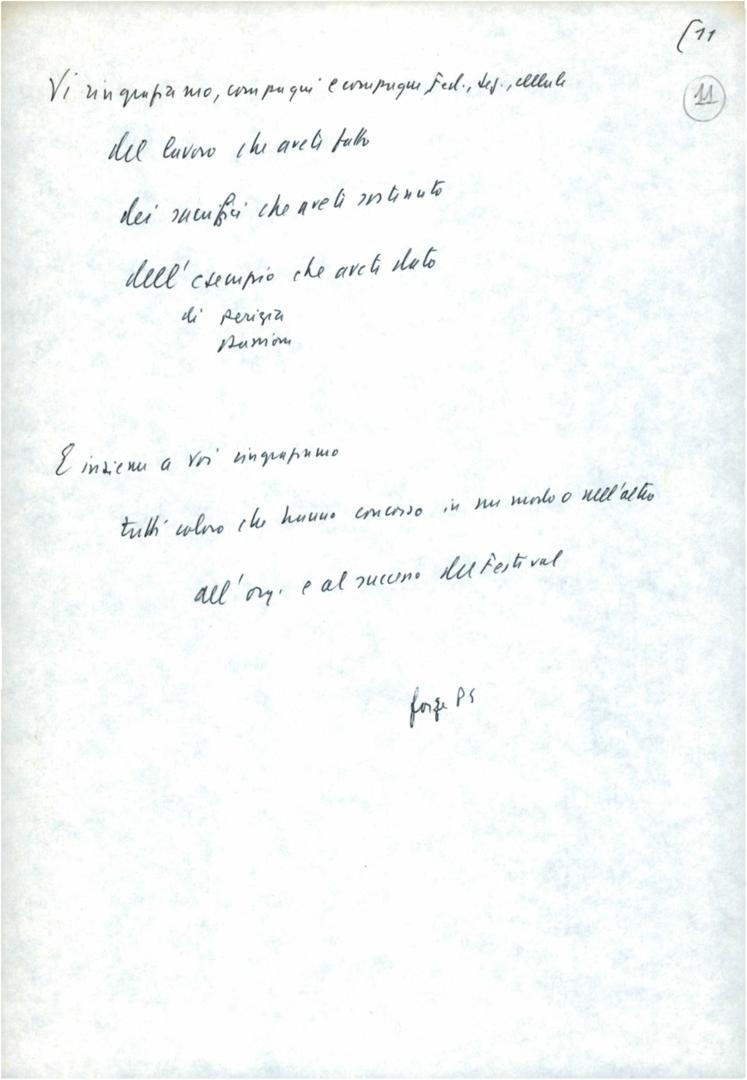 (11
11
Vi ringraziamo, compagni e compagne, Fed., sez., cellule
del lavoro che avete fatto
dei sacrifici che avete sostenuto
dell'esempio che avete dato
di perizia
passione
E insieme a voi ringraziamo
tutti coloro che hanno concorso in un modo o nell'altro
all'org. e al successo del Festival
forze PS